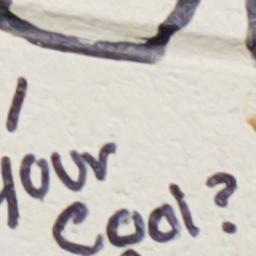 your
Cool?